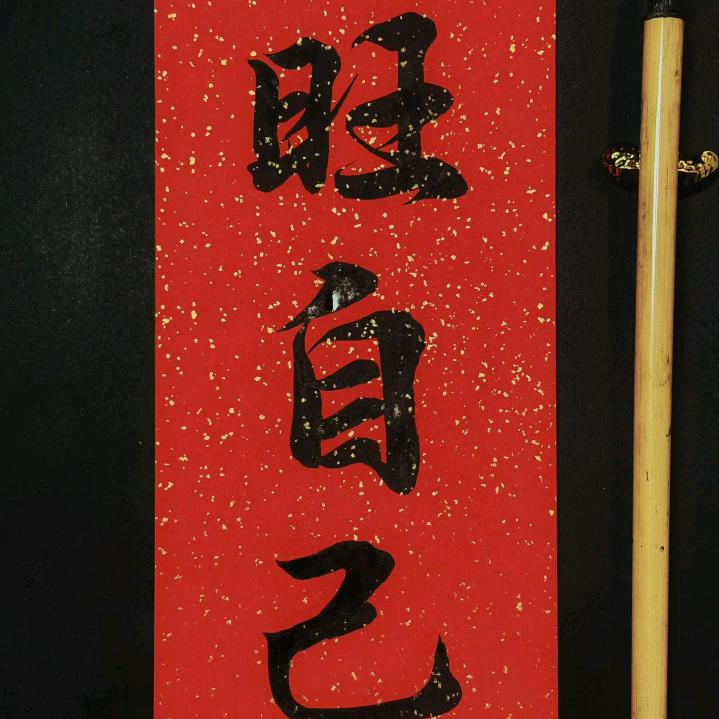 旺自己